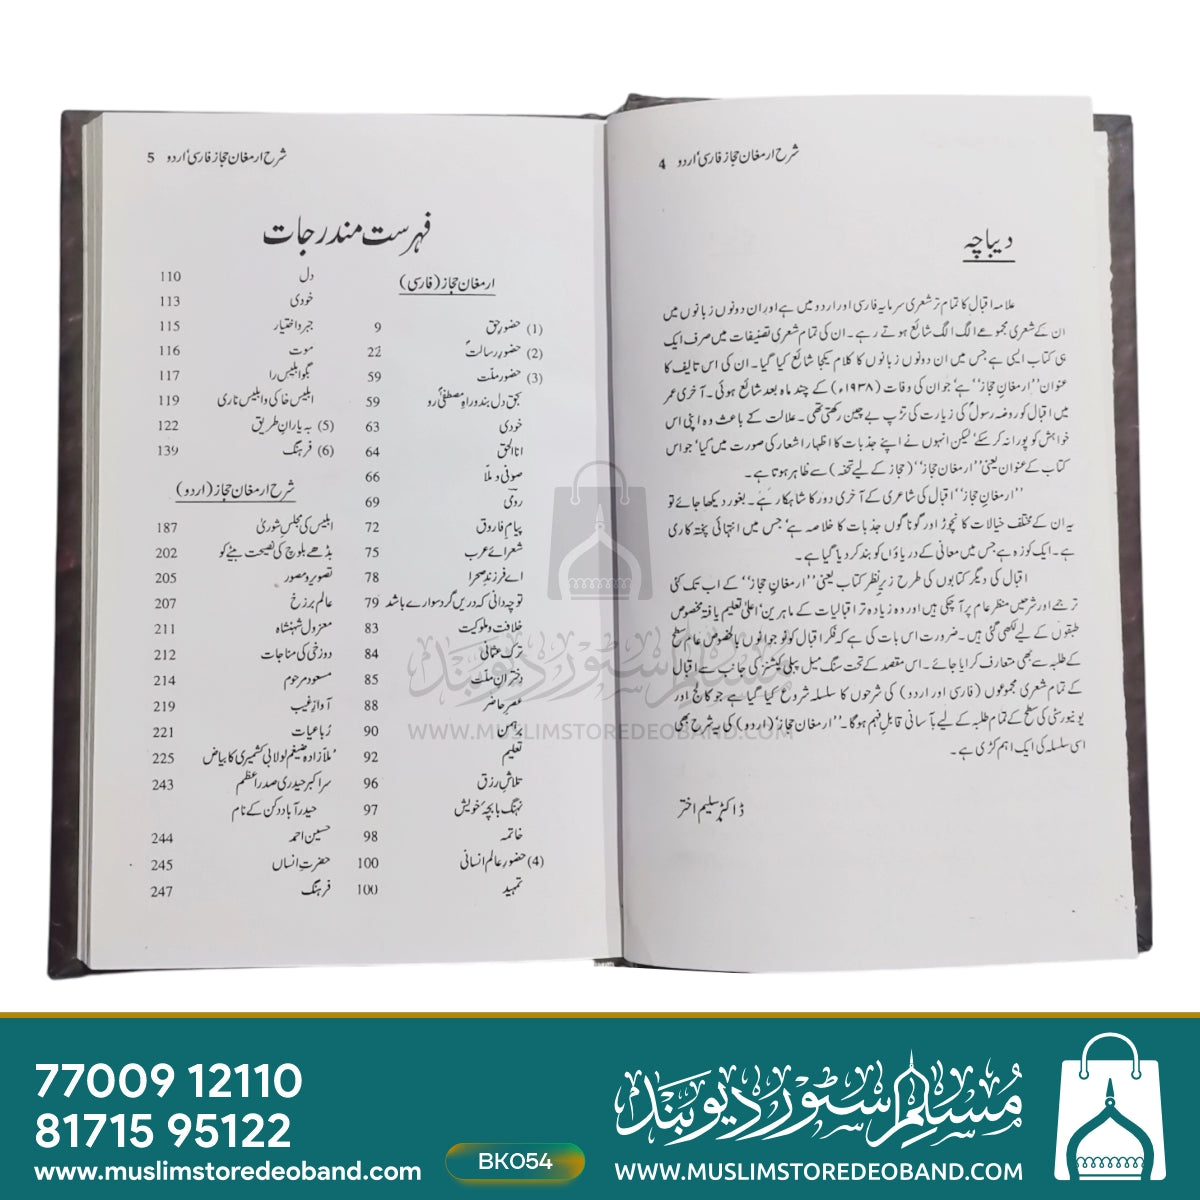 شرح ارمغان حجاز فارسی/اردو 4
دیباچہ
علامہ اقبال کا تمام تر شعری سرمایہ فارسی اور اردو میں ہے اور ان دونوں زبانوں میں
ان کے شعری مجموعے الگ الگ شائع ہوتے رہے۔ ان کی تمام شعری تصنیفات میں صرف ایک
ہی کتاب ایسی ہے جس میں ان دونوں زبانوں کا کلام یکجا شائع کیا گیا۔ ان کی اس تالیف کا
عنوان ''ارمغانِ حجاز'' ہے' جو ان کی وفات (۱۹۳۸ء) کے چند ماہ بعد شائع ہوئی۔ آخری عمر
میں اقبال کو روضہ رسولؐ کی زیارت کی تڑپ بے چین رکھتی تھی۔ علالت کے باعث وہ اپنی اس
خواہش کو پورا نہ کر سکے' لیکن انہوں نے اپنے جذبات کا اظہار اشعار کی صورت میں کیا' جو اس
کتاب کے عنوان یعنی ''ارمغانِ حجاز'' (حجاز کے لیے تحفہ) سے ظاہر ہوتا ہے۔
''ارمغانِ حجاز'' اقبال کی شاعری کے آخری دور کا شاہکار ہے۔ بغور دیکھا جائے تو
یہ ان کے مختلف خیالات کا نچوڑ اور گوناگوں جذبات کا خلاصہ ہے' جس میں انتہائی پختہ کاری
ہے۔ ایک کوزہ ہے جس میں معانی کے دریاؤں کو بند کر دیا گیا ہے۔
اقبال کی دیگر کتابوں کی طرح زیرِ نظر کتاب یعنی ''ارمغانِ حجاز'' کے اب تک کئی
ترجمے اور شرحیں منظر عام پر آ چکی ہیں اور وہ زیادہ تر اقبالیات کے ماہرین' اعلیٰ تعلیم یافتہ مخصوص
طبقوں کے لیے لکھی گئی ہیں۔ ضرورت اس بات کی ہے کہ فکر اقبال کو نوجوانوں بالخصوص عام سطح
کے طلبہ سے بھی متعارف کرایا جائے۔ اس مقصد کے تحت سنگ میل پبلی کیشنز کی جانب سے اقبال
کے تمام شعری مجموعوں (فارسی اور اردو) کی شرحوں کا سلسلہ شروع کیا گیا ہے جو کالج اور
یونیورسٹی کی سطح کے تمام طلبہ کے لیے بآسانی قابل فہم ہوگا۔ ''ارمغانِ حجاز'' (اردو) کی یہ شرح بھی
اسی سلسلہ کی ایک اہم کڑی ہے۔
ڈاکٹر سلیم اختر
شرح ارمغان حجاز فارسی/اردو 5
فہرست مندرجات
ارمغان حجاز (فارسی)
(1) حضورِ حق 9
(2) حضورِ رسالتؐ 22
(3) حضورِ ملت 59
بحق دل بند و راہِ مصطفیٰؐ رو 59
خودی 63
انا الحق 64
صوفی و ملّا 66
رومیؒ 69
پیام فاروقؓ 72
شعرائے عرب 75
اے فرزندِ صحرا 78
تو چہ دانی کہ دریں گرد سوارے باشد 79
خلافت و ملوکیت 83
ترک عثمانی 84
دخترانِ ملّت 85
عصرِ حاضر 88
برہمن 90
تعلیم 92
تلاشِ رزق 96
نہنگ با بچہ خویش 97
خاتمہ 98
(4) حضورِ عالم انسانی 100
تمہید 100
دل 110
خودی 113
جبر و اختیار 115
موت 116
بگو ابلیس را 117
ابلیس خاکی و ابلیس ناری 119
(5) بہ یارانِ طریق 122
(6) فرہنگ 139
شرح ارمغان حجاز (اردو)
ابلیس کی مجلسِ شوریٰ 187
بڈھے بلوچ کی نصیحت بیٹے کو 202
تصویر و مصور 205
عالم برزخ 207
معزول شہنشاہ 211
دوزخی کی مناجات 212
مسعود مرحوم 214
آوازِ غیب 219
رُباعیات 221
مُلّا زادہ ضیغم لولابی کشمیری کا بیاض 225
سر اکبر حیدری صدر اعظم 243
حیدر آباد دکن کے نام
حسین احمد 244
حضرتِ انساں 245
فرہنگ 247
مسلم سٹور دیوبند
WWW.MUSLIMSTOREDEOBAND.COM
77009 12110
81715 95122
www.muslimstoredeoband.com
BK054
مسلم سٹور دیوبند
WWW.MUSLIMSTOREDEOBAND.COM